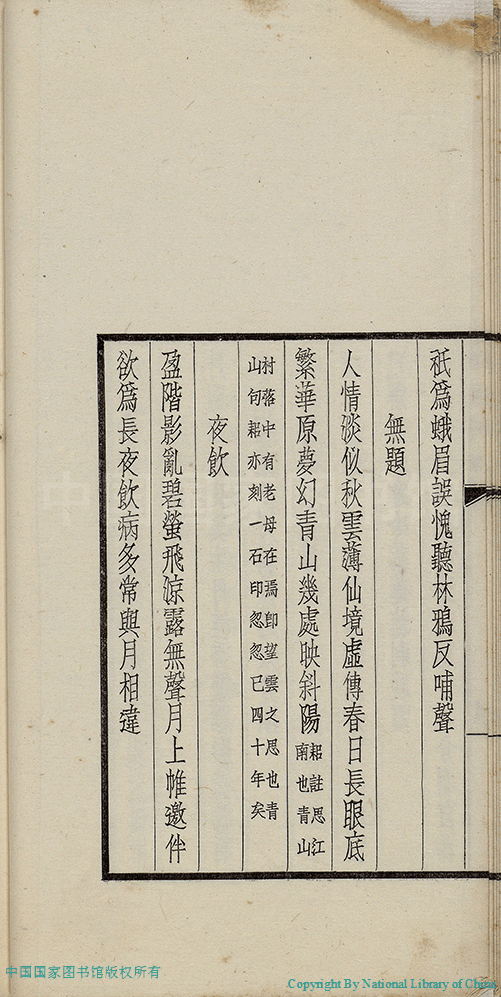 祇爲蛾眉誤愧聽林鴉反哺聲
無題
人情淡似秋雲薄仙境虛傳春日長眼底
繁華原夢幻青山幾處映斜陽
註思江
南也青山
村落中有老母在焉卽望雲之思也青
山句亦刻一石印忽忽已四十年矣
夜飮
盈階影亂碧螢飛涼露無聲月上帷邀伴
欲爲長夜飮病多常與月相違
中国国家图书馆版权所有
Copyright By National Library of China